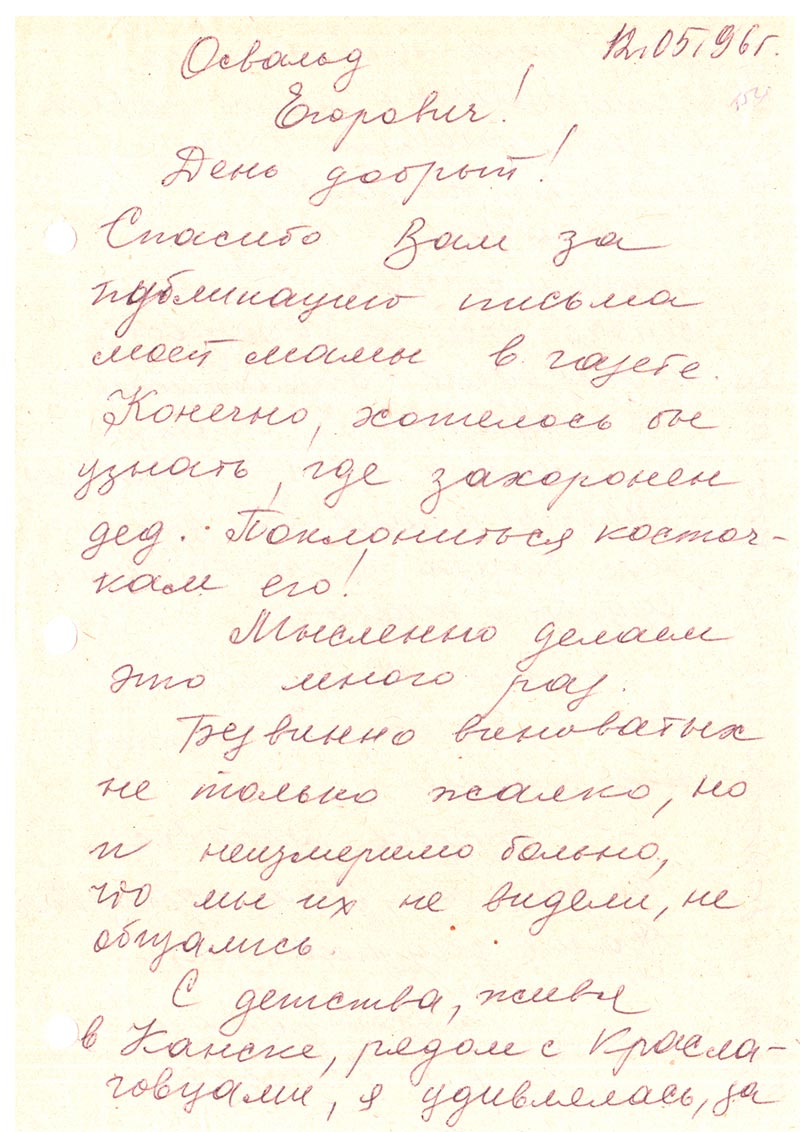 12.05.96г.
Освальд
Егорович!
День добрый!
Спасибо Вам за
публикацию письма
моей мамы в газете.
Конечно, хотелось бы
узнать, где захоронен
дед. Поклониться косточ-
кам его!
Мысленно делаем
это много раз.
Безвинно виноватых
не только жалко, но
и неизмеримо больно,
что мы их не видели, не
общались.
С детства, живя
в Канске, рядом с Красла-
говцами, я удивлялась, за